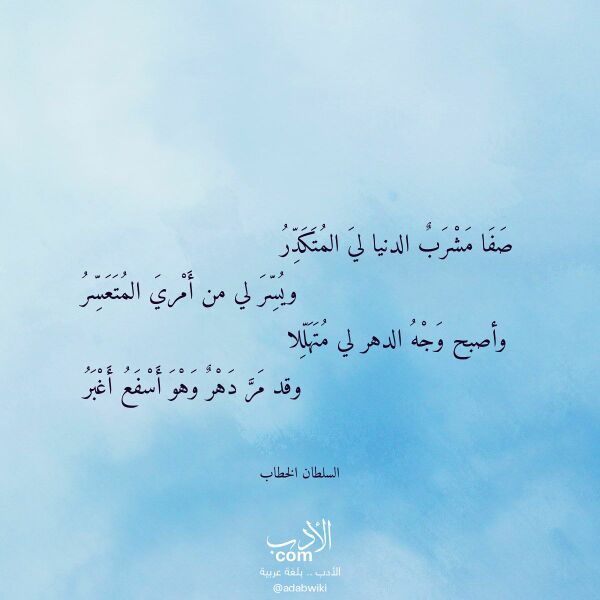 صَفَا مَشْرَبٌ الدنيا ليَ المُتَكَدِّرُ
ويُسِّرَ لي من أَمْريَ المُتَعَسِّرُ
وأصبح وَجْهُ الدهر لي مُتَهَلِّلا
وقد مَرَّ دَهْرٌ وَهْوَ أَسْفَعُ أَغْبَرُ
السلطان الخطاب
الأدب
com
الأدب .. بلغة عربية
@adabwiki